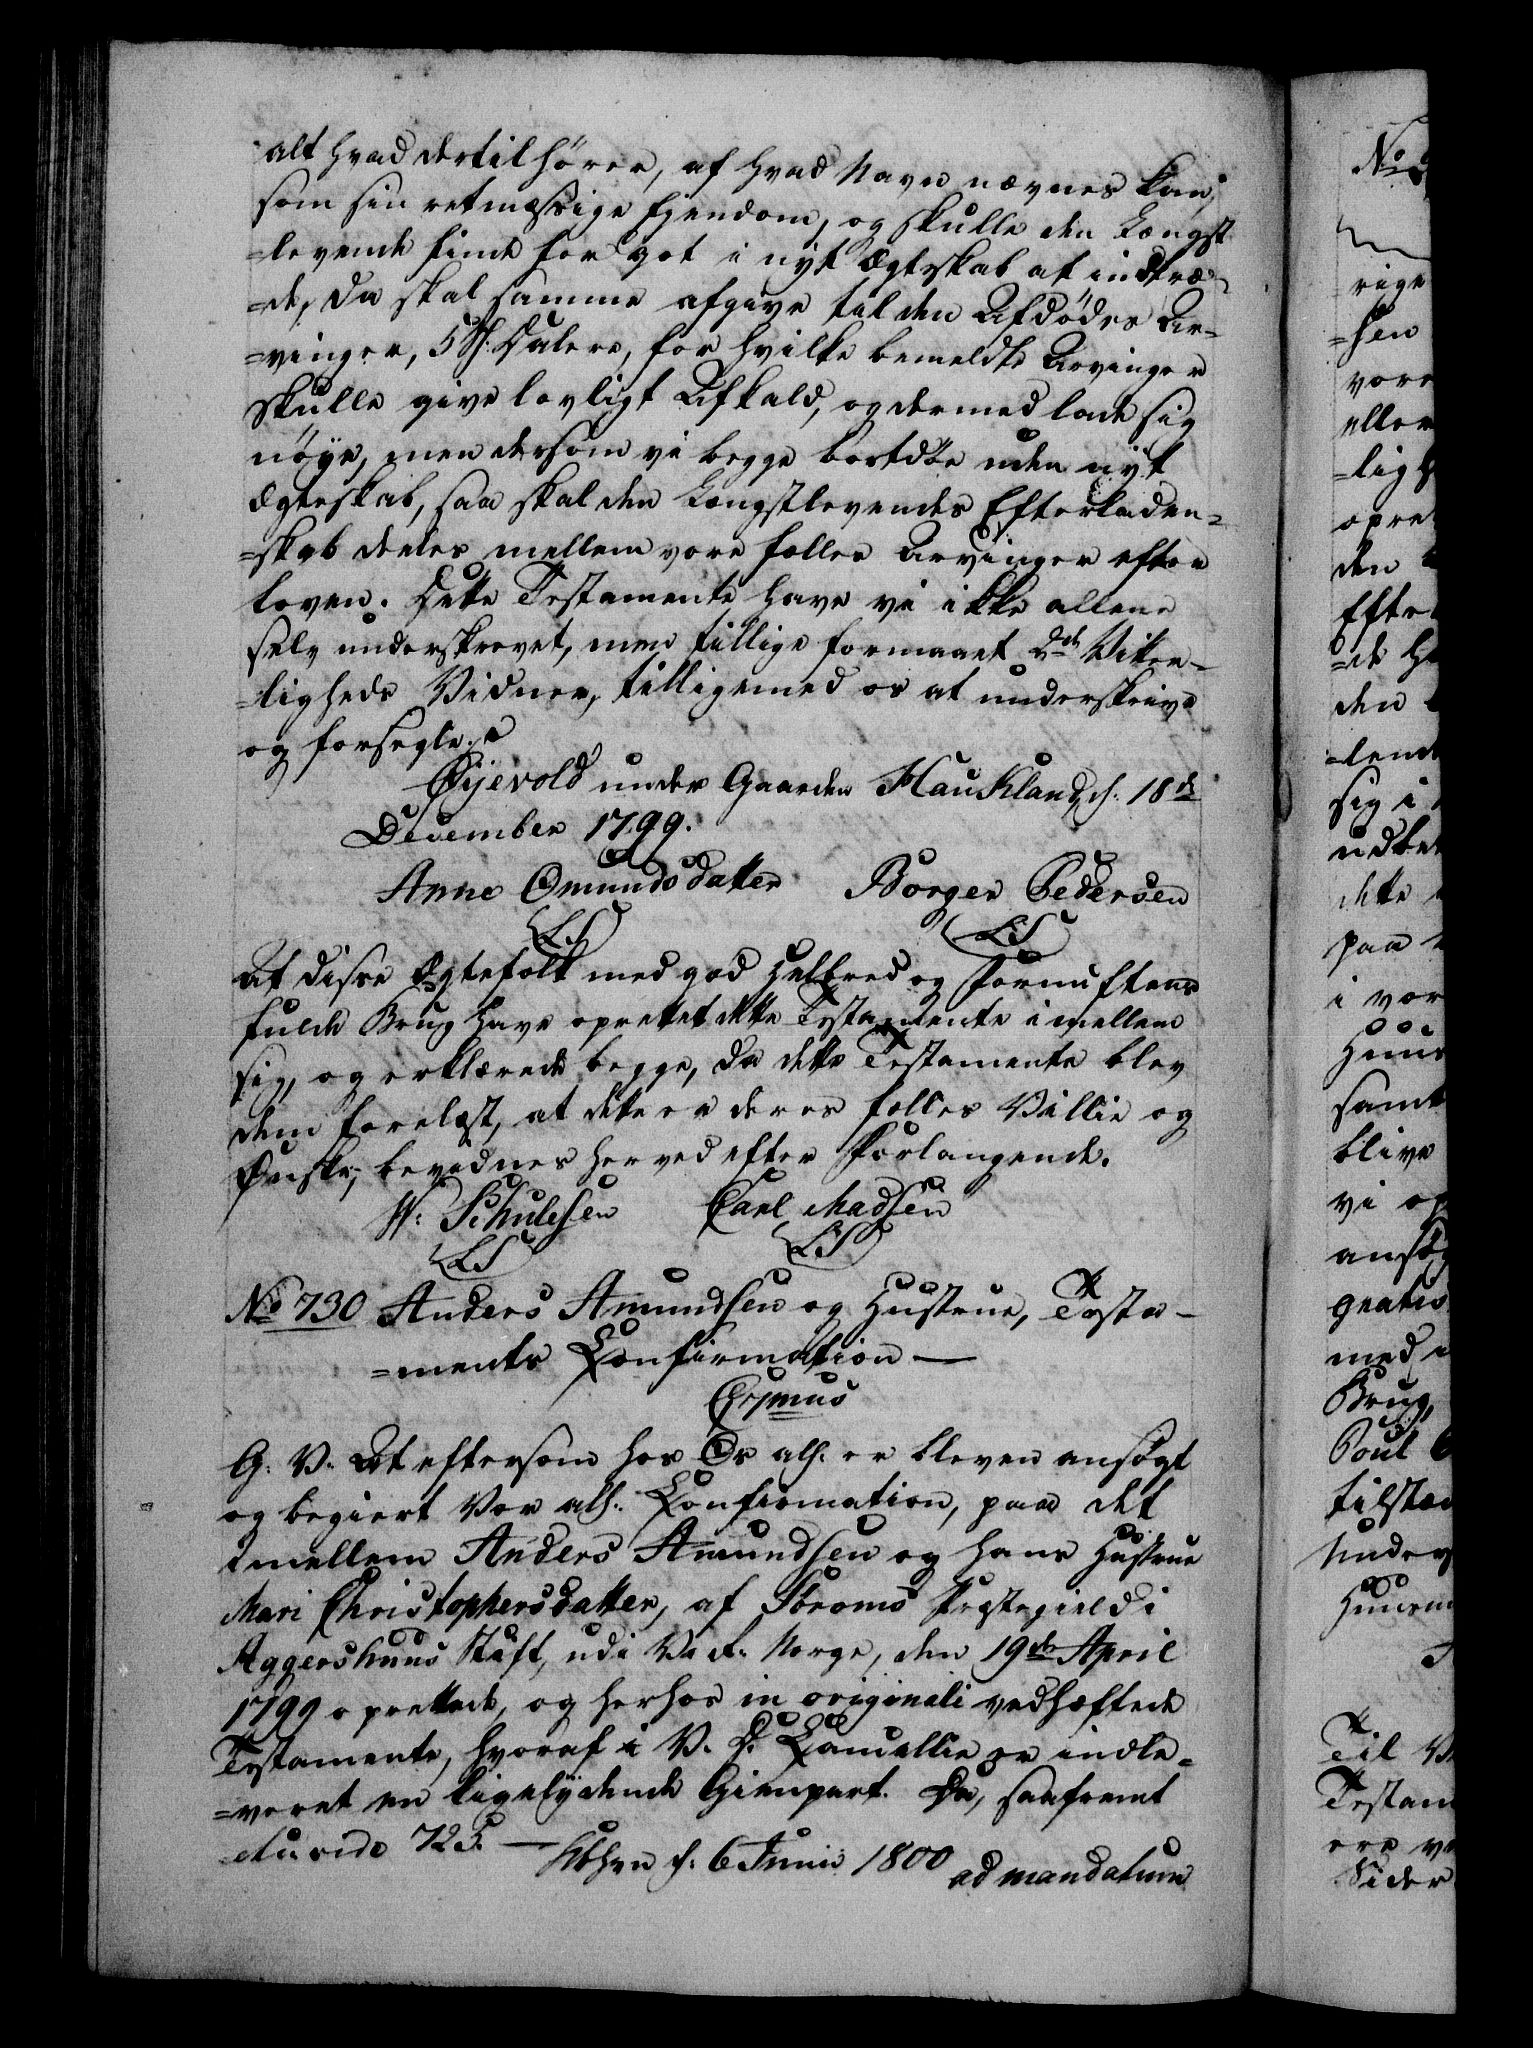 alt hvad dertil hører, af hvad Navn nævnes kan,
som sin retmæssige Ejendom, og skulle den Længst
=levende finde for got i nyt Ægteskab at indtræ-
=de, da skal samme afgive til den Afdødes Ar-
=vinger, 5 Rd. Dalere, for hvilke bemeldte Arvinger
skulle give lovligt Afkald, og dermed lade sig
nøye, men dersom vi begge bortdøe uden nyt
Ægteskab, saa skal den Længstlevendes Efterladen=
=skab deeles mellem vore fælles Arvinger efter
Loven. Dette Testamente have vi ikke allene
selv underskrevet, men tillige formaaet 2de Vitter-
=ligheds Vidner, tilligemed os at underskrive
og forsegle.
Øijevold under Gaarden Haukland, d. 18de
December 1799.
Anne Omundsdatter Borger Pedersen
LS LS
At disse Ægtefolk med god Helbred og Fornuftens
fulde Brug have oprettet dette Testamente imellem
sig, og erklærede begge, da dette Testamente blev
dem forelæst, at dette er deres fælles Villie og
Ønske, bevidnes herved efter Forlangende.
W: Schulesen Carl Madsen
LS LS
No 730 Anders Amundsen og Hustrue, Testa-
=ments Confirmation —
G. V. At eftersom hos Os alh. er bleven ansøgt
og begiert Vor alh. Confirmation, paa det
imellem Anders Amundsen og hans Hustrue
Mari Christophersdatter, af Præstegield i
Aggershuus Stift, udi V. R. Norge, den 19de April
1799 oprettede, og herhos in originali vedhæftede
Testamente, hvoraf i V. D. Cancellie er indle=
=veret en ligelydende Gienpart. Da, saafremt
vide 725. — Kbhvn d. 6 Junii 1800
ad mandatum